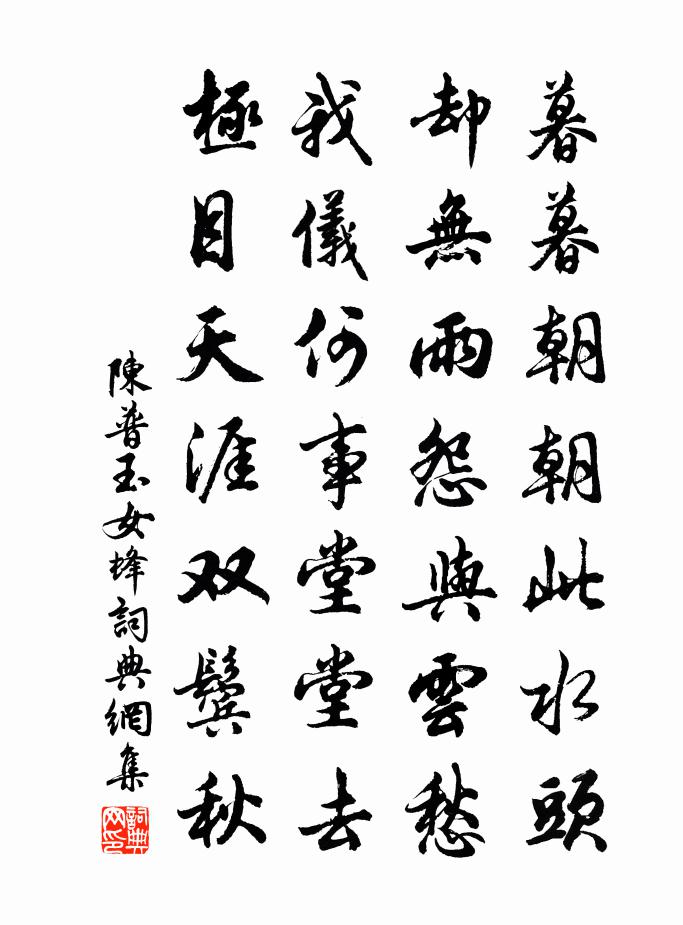 暮暮朝朝此水頭
却無雨怨與雲愁
我儀何事堂堂去
極目天涯双鬢秋
陳普玉女峰詞典網集
詞典网印